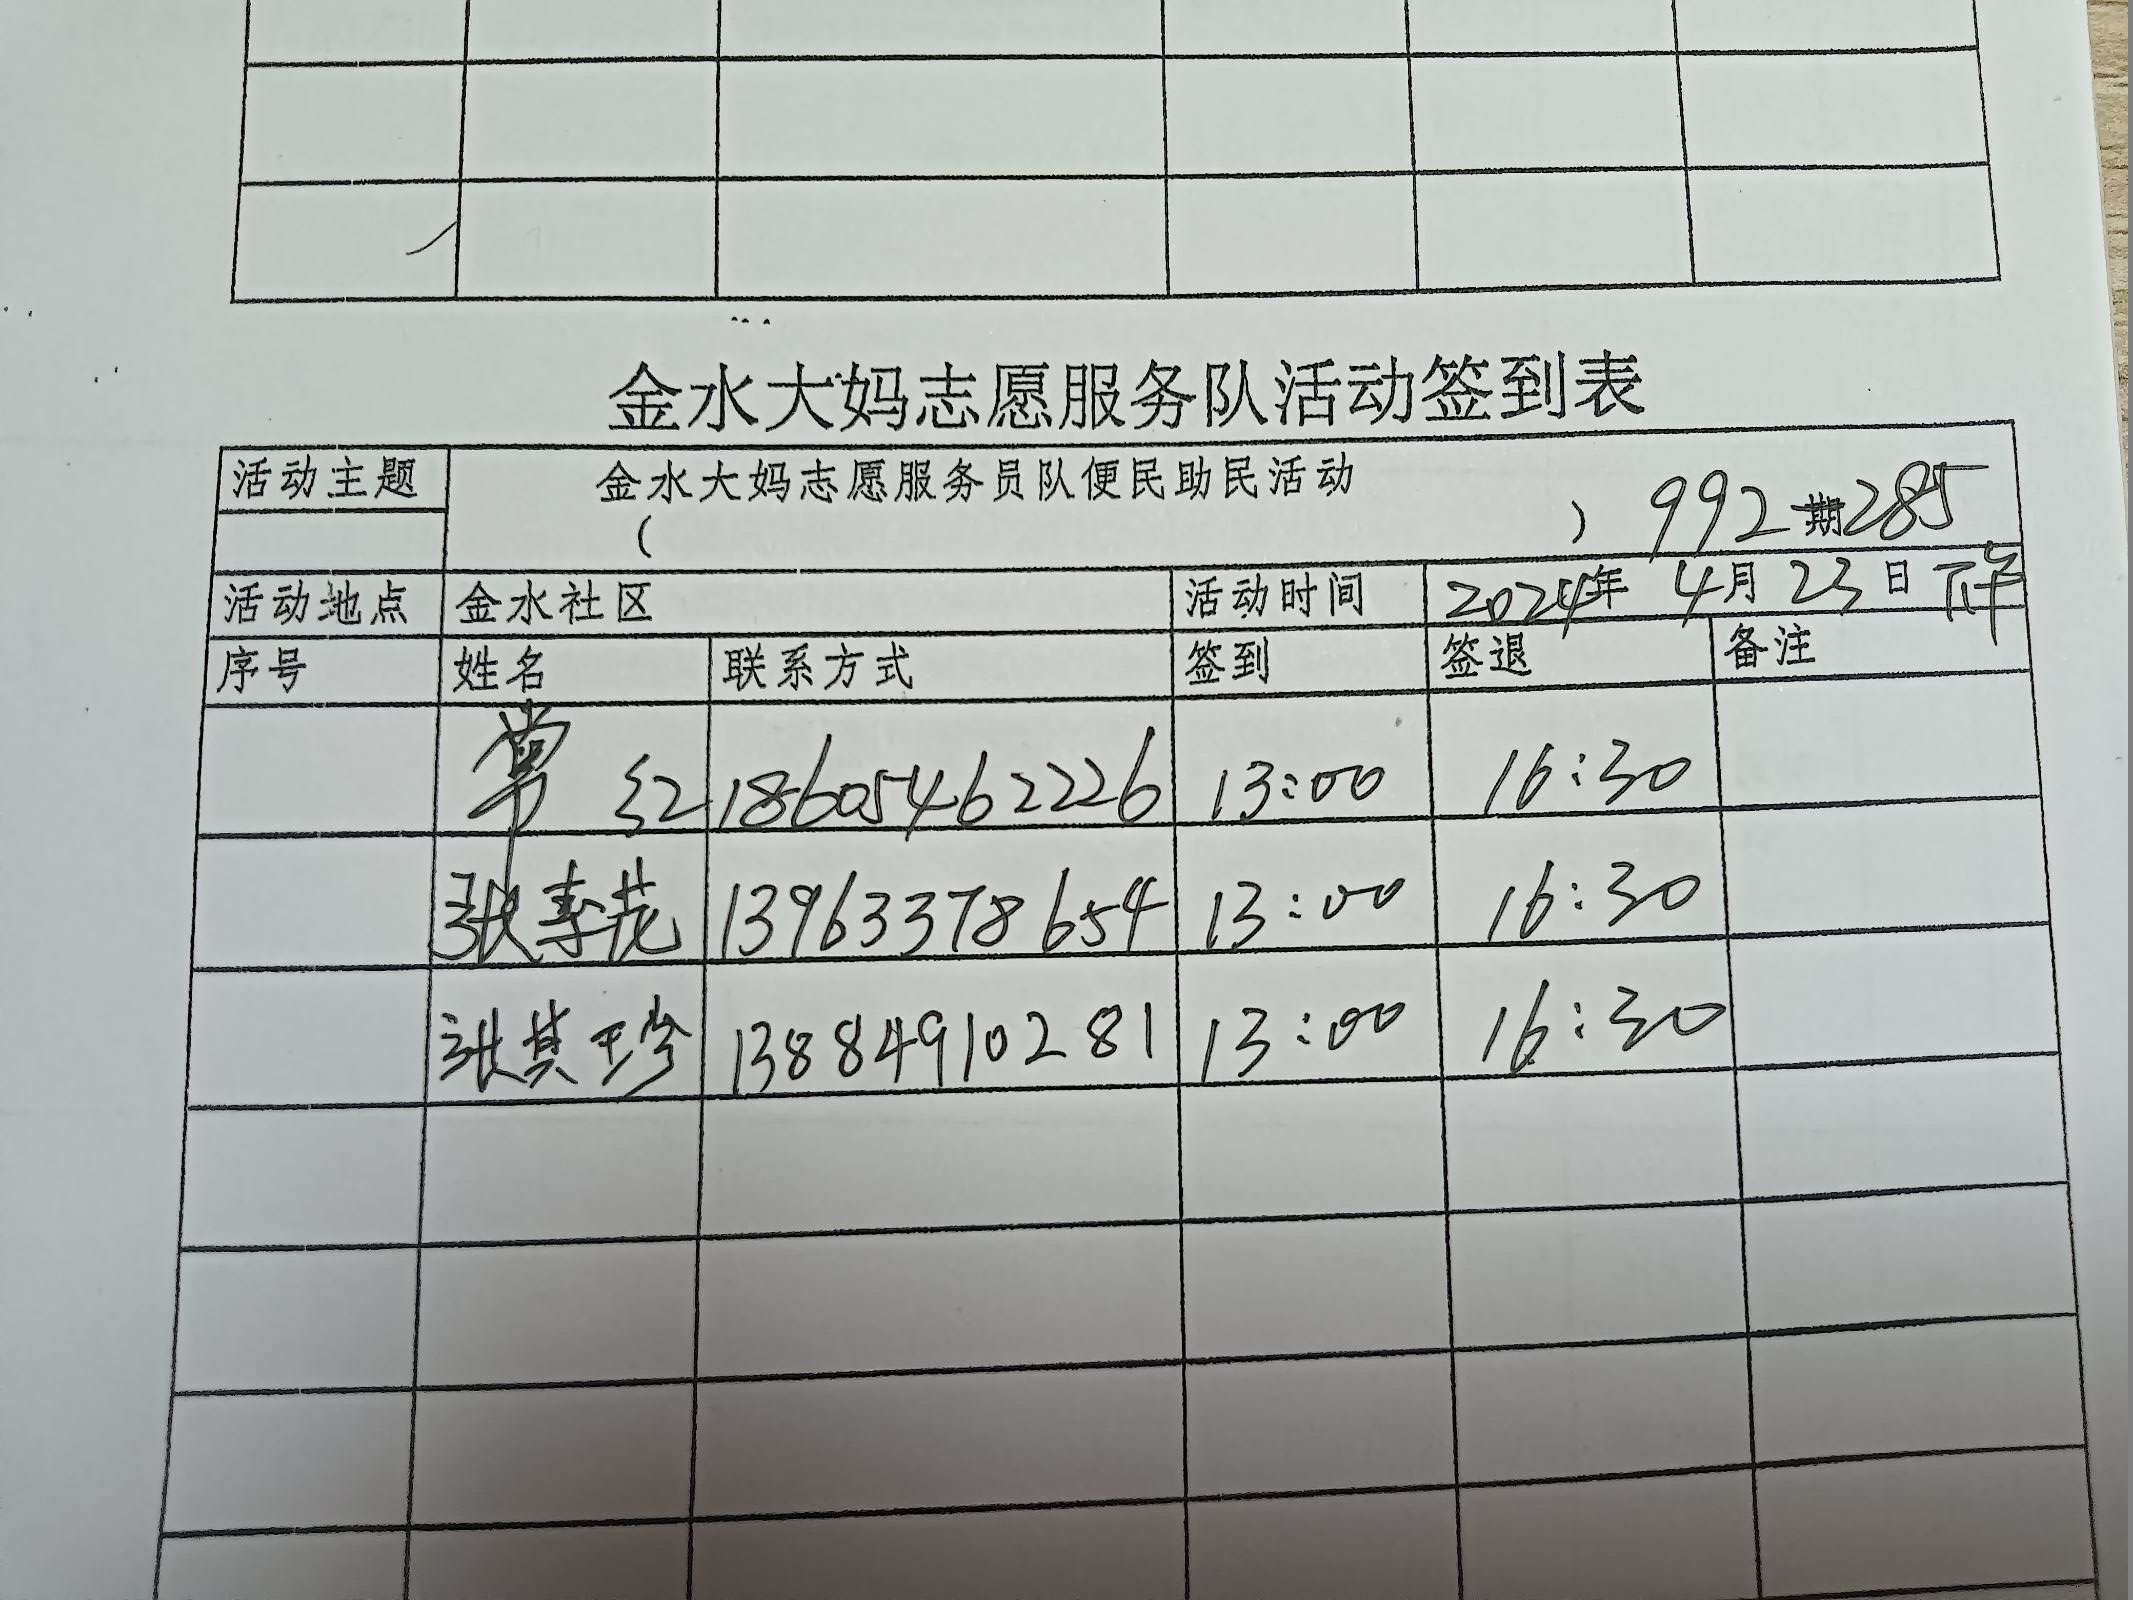 金水大妈志愿服务队活动签到表
活动主题 金水大妈志愿服务员队便民助民活动
( ) 992期285
活动地点 金水社区 活动时间 2024年 4月 23日 下午
序号 姓名 联系方式 签到 签退 备注
常红 18605462226 13:00 16:30
张素花 13963378654 13:00 16:30
张其珍 13884910281 13:00 16:30